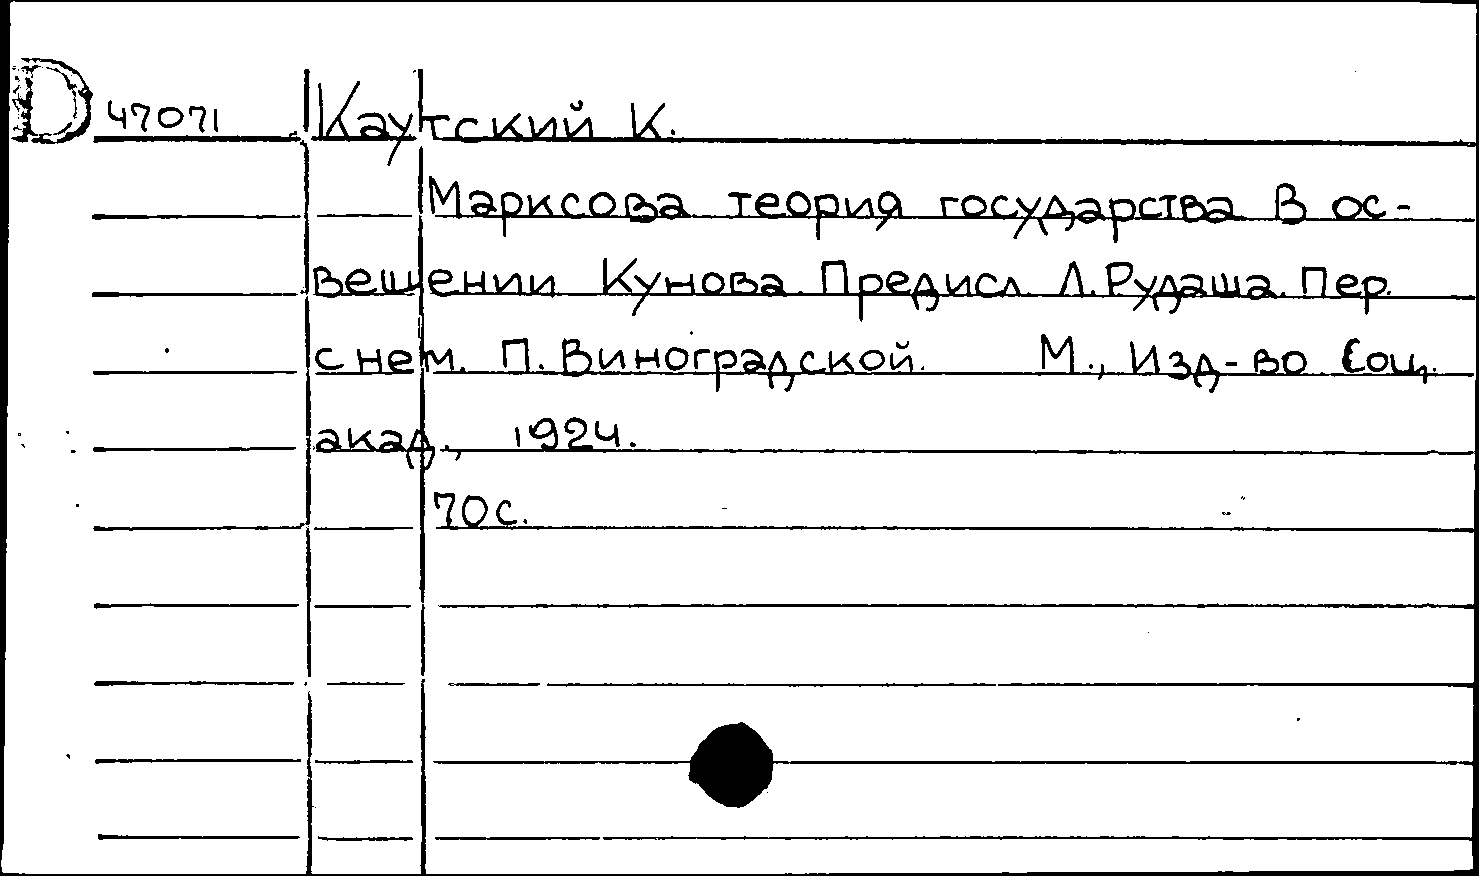 D 47071 Каутский К.
Марксова теория государства в ос-
вещении Кунова. Предисл. Л. Рудаша. Пер.
с нем. П. Виноградской. М., Изд-во Соц.
акад., 1924.
70 с.